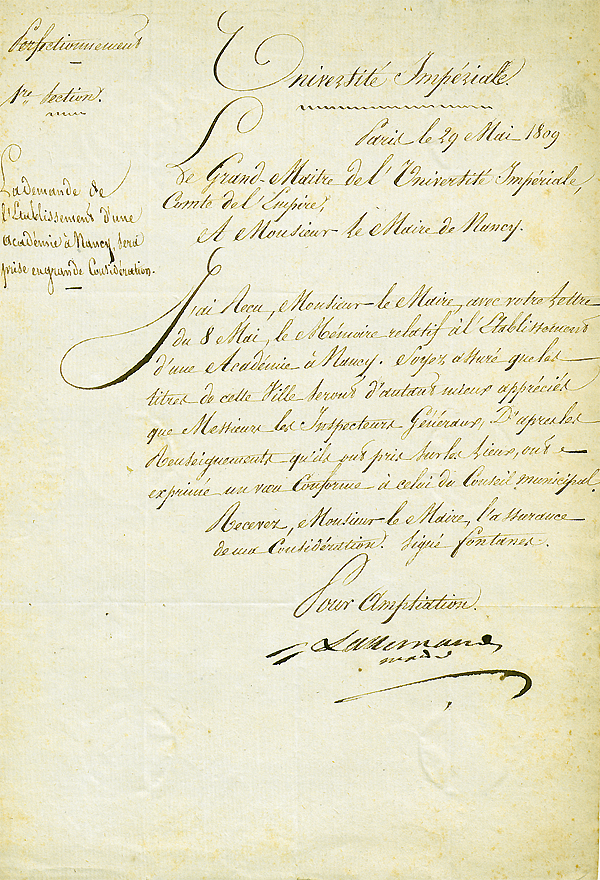 Perfectionnement
1re Section.
La demande de
l'Etablissement d'une
académie à Nancy, sera
prise en grande Considération.
Université Impériale.
Paris le 29 Mai 1809
Le Grand-Maitre de l'Université Impériale,
Comte de l'Empire,
A Monsieur le Maire de Nancy.
J'ai Recu, Monsieur le Maire, avec votre Lettre
du 8 Mai, le Mémoire relatif à l'Etablissement
d'une Académie à Nancy. Soyez assuré que les
titres de cette Ville seront d'autant mieux appréciés
que Messieurs les Inspecteurs Généraux, D'apres les
Renseignements qu'ils ont pris sur les Lieux, ont
exprimé un vœu Conforme à celui du Conseil municipal.
Recevez, Monsieur le Maire, l'assurance
de ma Considération. Signé Fontanes.
Pour Ampliation.
Lallemand
maire